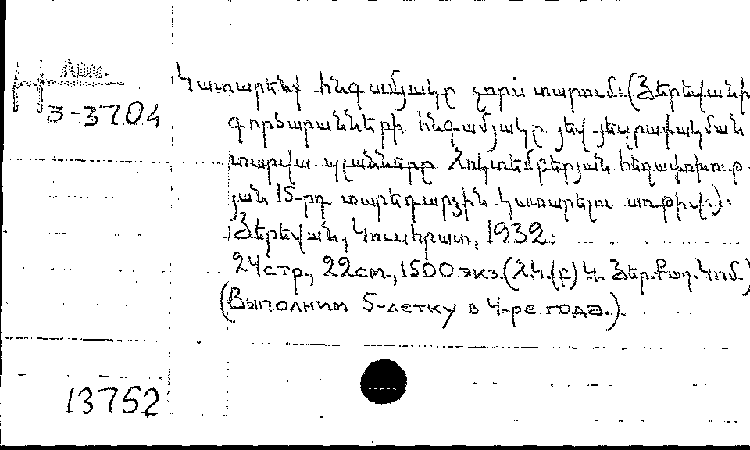 Կատարենք հնգամյակը չորս տարում: (Յերեվանի
3-3704
գործարանների հնգամյակը յեվ յեզրափակման
տարվա պլանները Հոկտեմբերյան հեղափոխութ-
յան 15-րդ տարեդարձին կատարելու առթիվ):
Յերեվան, Կուսհրատ, 1932:
24стр., 22см., 1500 экз. (ՀԿ(բ)Կ. Յեր. Քաղ. Կոմ.)
(Выполним 5-летку в 4-ре года.).
13752